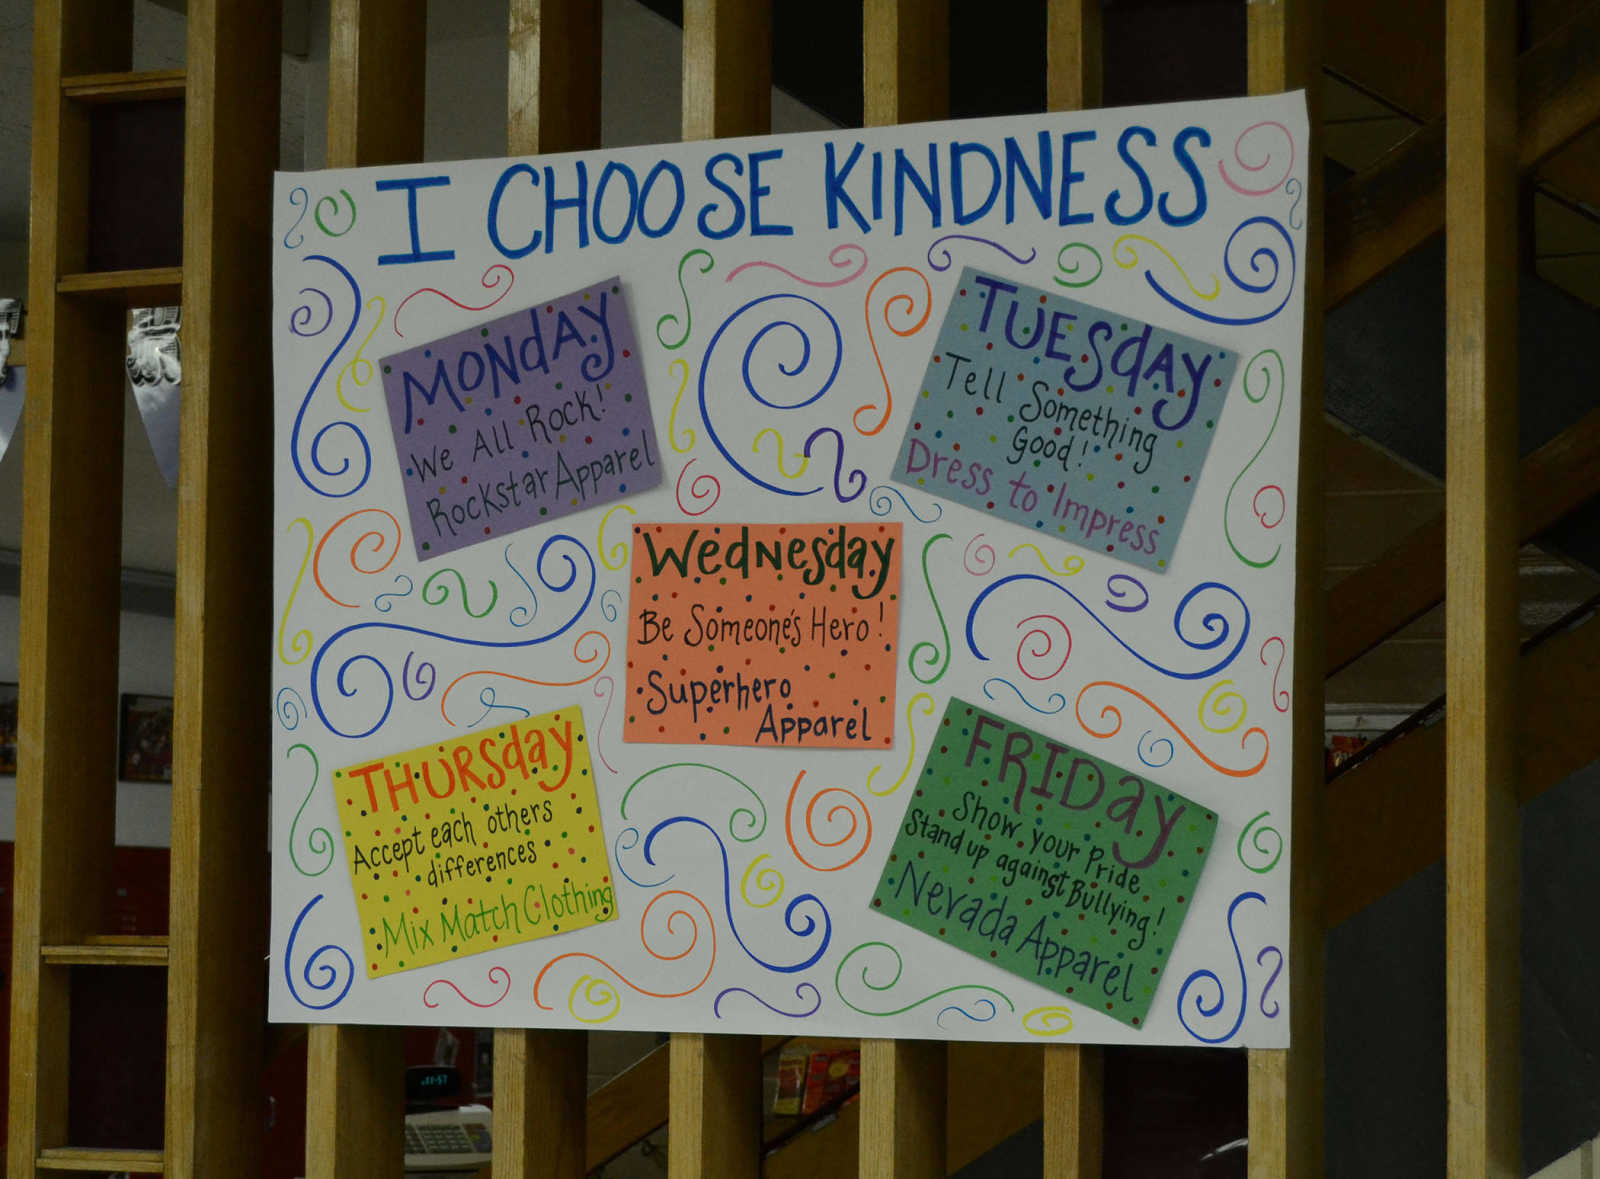 I CHOOSE KINDNESS
MONdAY
We All Rock!
Rockstar Apparel
TUESdAY
Tell Something
Good!
Dress to Impress
Wednesday
Be Someone's Hero!
Superhero
Apparel
THURSday
Accept each others
differences
Mix Match Clothing
FRIDay
Show your Pride
Stand up against Bullying!
Nevada Apparel